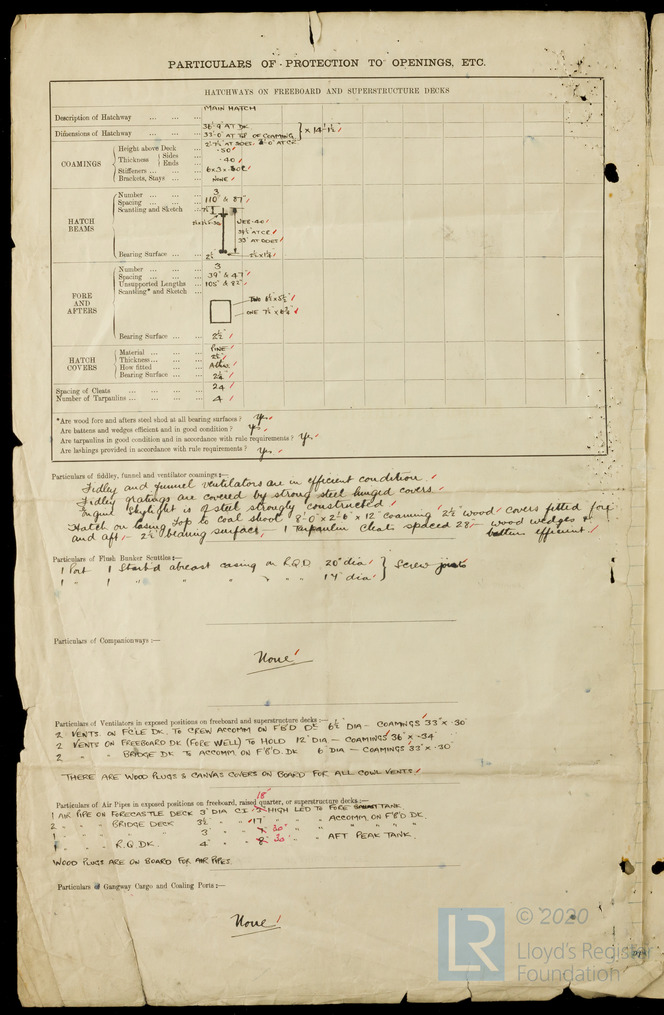 PARTICULARS OF PROTECTION TO OPENINGS, ETC.
HATCHWAYS ON FREEBOARD AND SUPERSTRUCTURE DECKS
Description of Hatchway ... ... ... MAIN HATCH
Dimensions of Hatchway ... ... 38'-9" AT DK 33'-0" AT TOP OF COAMING } x 14'-1½"
COAMINGS
Height above Deck ... 2'-7½" AT SIDES, 3'-0" AT CR
Thickness { Sides ... .50
Ends ... .40
Stiffeners ... ... 6x3x.50
Brackets, Stays ... ... NONE
HATCH BEAMS
Number ... ... ... 3
Spacing ... ... ... 110" & 87"
Scantling and Sketch
Bearing Surface ... ... 2½"
FORE AND AFTERS
Number ... ... ... 3
Spacing ... ... ... 39" & 47"
Unsupported Lengths ... 105" & 82"
Scantling* and Sketch ...
ONE 7½ x
Bearing Surface ... ... 2½"
HATCH COVERS
Material ... ... ... PINE
Thickness ... ... ... 2½"
How fitted ... ...
Bearing Surface ... ...
Spacing of Cleats ... ... ... ... 24
Number of Tarpaulins ... ... ... ... 4
*Are wood fore and afters steel shod at all bearing surfaces? Yes.
Are battens and wedges efficient and in good condition? Yes.
Are tarpaulins in good condition and in accordance with rule requirements? Yes.
Are lashings provided in accordance with rule requirements? Yes.
Particulars of fiddley, funnel and ventilator coamings:—
Fidley and funnel ventilators are in efficient condition.
Fidley gratings are covered by strong steel hinged covers.
Engine skylight is of steel strongly constructed.
Hatch on casing top to coal shoot 8'-0" x 2'-6" x 12" coaming 2½" wood covers fitted fore
and aft, 2½" bearing surface, 1 Tarpaulin Cleats spaced 28" wood wedges &
battens efficient
Particulars of Flush Bunker Scuttles:—
1 Port 1 Starb'd abreast casing on R.Q.D. 20" dia } Screw joints
1 " 1 " " " " 17" dia
Particulars of Companionways:—
None
Particulars of Ventilators in exposed positions on freeboard and superstructure decks:—
2 VENTS. ON FC'LE DK. TO CREW ACCOMM ON F'B'D DK 6½" DIA - COAMINGS 33" x .30"
2 VENTS ON FREEBOARD DK (FORE WELL) TO HOLD 12" DIA - COAMINGS 36" x .34"
2 " " BRIDGE DK TO ACCOMM ON F'B'D. DK 6" DIA - COAMINGS 33" x .30"
THERE ARE WOOD PLUGS & CANVAS COVERS ON BOARD FOR ALL COWL VENTS
Particulars of Air Pipes in exposed positions on freeboard, raised quarter, or superstructure decks:—
18"
1 AIR PIPE ON FORECASTLE DECK 3" DIA C.I. HIGH LED TO FORE TANK
2 " " " BRIDGE DECK 3½" " " 17" " " " ACCOMM ON F'B'D DK.
1 " " " " 3" " " 30" " " " " " "
1 " " " R.Q. DK. 4" " " 30 " " " AFT PEAK TANK.
WOOD PLUGS ARE ON BOARD FOR AIR PIPES.
Particulars of Gangway Cargo and Coaling Ports:—
None
LR © 2020
Lloyd's Register
Foundation